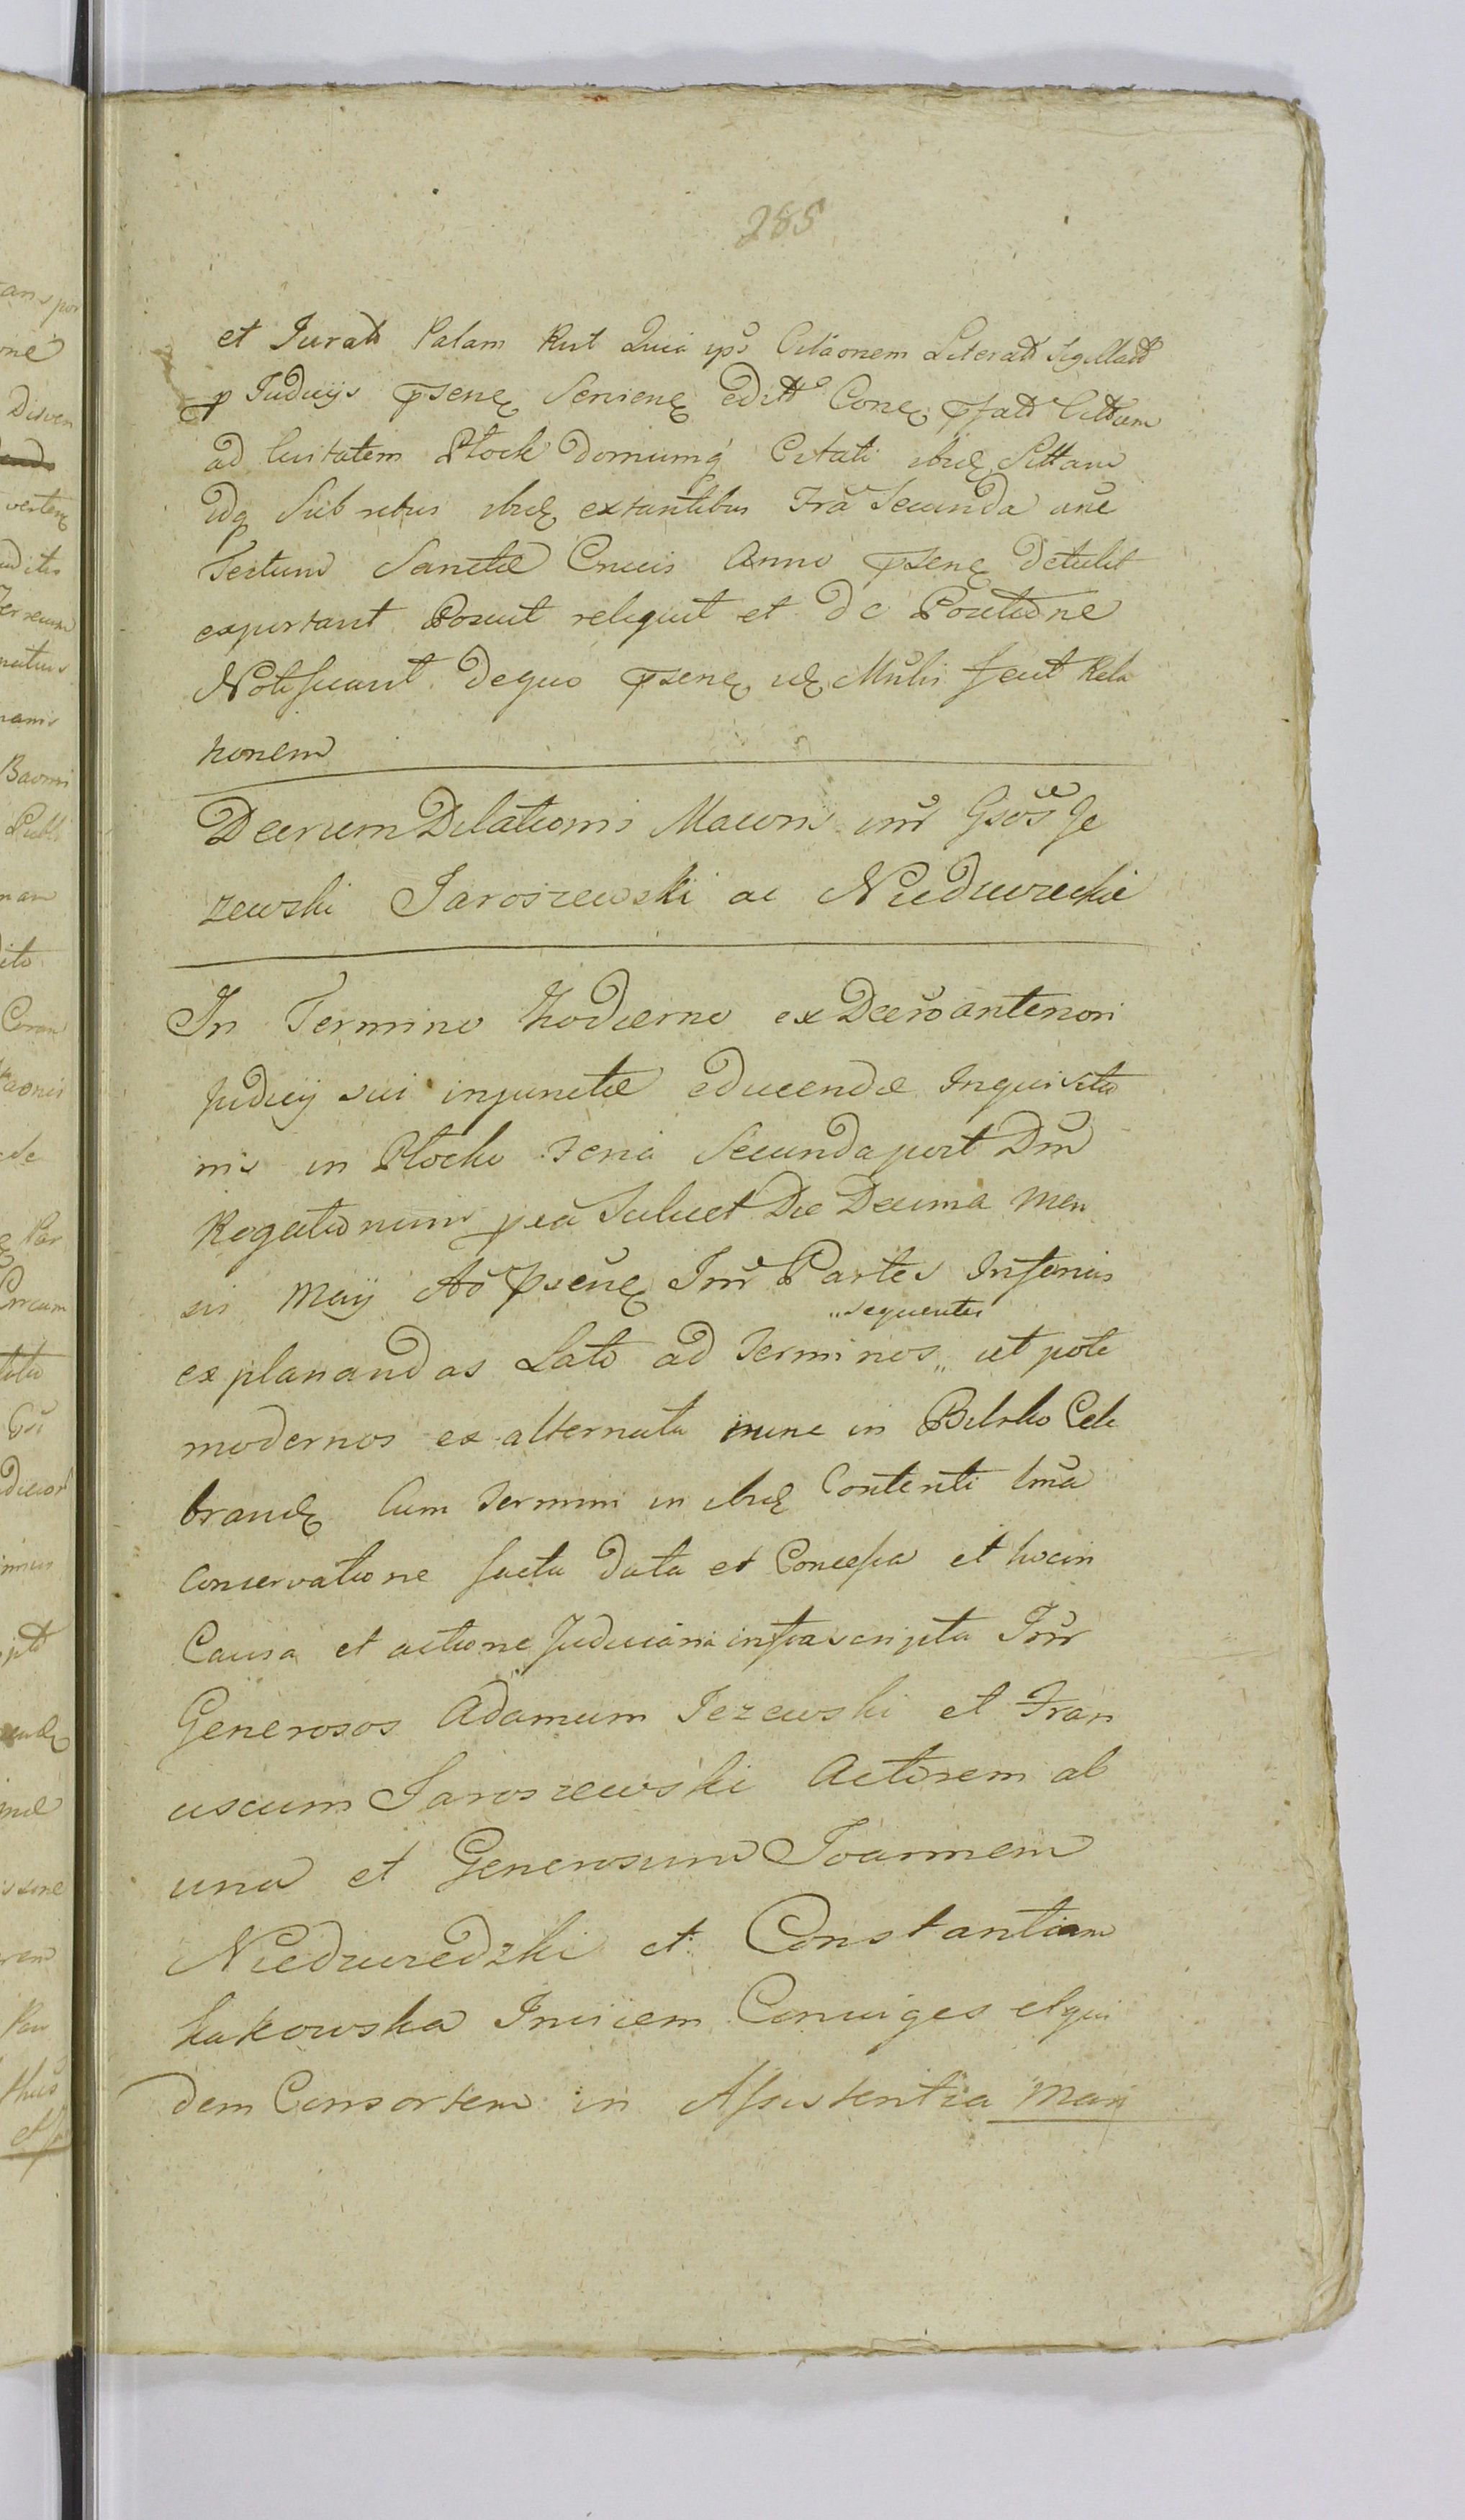 285
et Jurat Palam Rut Quia ips Citaonem Literatt Sigillatt
p Judicijs psene Serviene editt Cone pfatt Cittam
ad Civitatem Płock domumq Citati ibid Sittam
idq Sub rebus ibid extantibus Fra Secunda ane
Festum Sanctae Crucis Anno psene detulit
exportavit Posuit reliquit et de Positione
Notificavit dequo psene id Mnlis fecit Rela
tionem
Decrum Dilationis Maioris inr Gsos Je
zewski Jaroszewski ac Niedwieckie
In Termino hodierno ex Decro anteriori
Judicij sui injunctae educendae Inquisitio
nis in Płocko Feria Secunda post Dm
Rogationum pia Scilicet Die Decima Men
sis Maij Ao psene Inr Partes Inferius
"sequentes
explanandas Lato ad Terminos " ut pote
modernos ex alternata nunc in Bilsko Cele
brand Cum Termini in ibid Contenti Oma
Conservatione facta data et Concessa et hocin
Causa et actione Judiciaria infrascripta Inr
Generosos Adamum Jezewski et Fran
ciscum Jaroszewski Actorem ab
una et Generosum Joannem
Niedzwiedzki et Constantiam
Łukowska Invicem Coniuges elqui
dem Consortem in Assistentia Mari